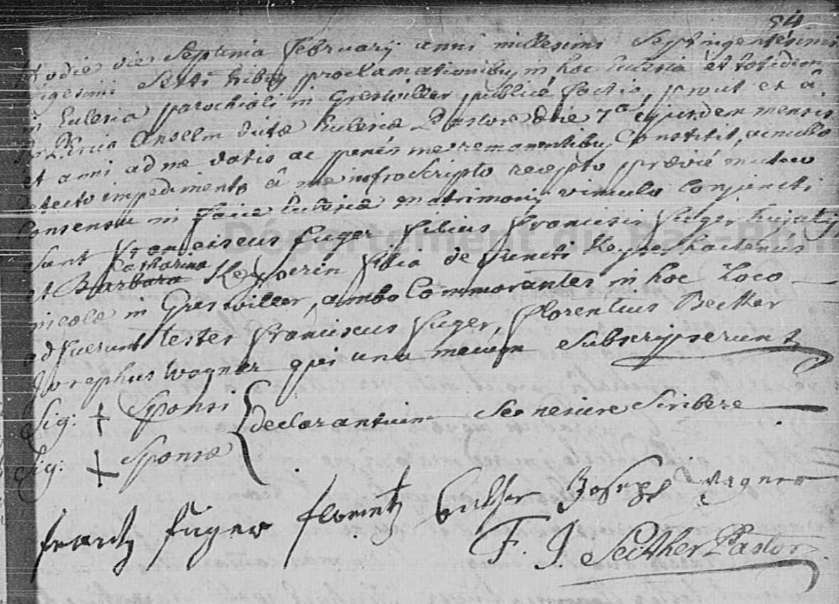 84
Hodie die Septima februarij anni millesimi Septingentesimi
Sexti tribus proclamationibus in hoc Ecclesia et totidem
in Ecclesia parochiali in Greswiller publice factis, prout et à
Anselm dictæ Ecclesiæ Pastore die 7a ejusdem mensis
et anni ad me datis ac penes me remanentibus Constitit, ac nullo
detecto impedimento à me infrascripto recepto prævie mutuo
Consensu in facie Ecclesiæ matrimonij vinculo Conjuncti
Sunt franciscus fuger filius francisci fuger hujatis
et Barbara Catharina filia defuncti
incolæ in Greswiller, ambo Commorantes in hoc Loco
adfuerunt testes franciscus fuger, florentius Beckler
Josephus wagner qui una mecum Subscripserunt
Sig: + Sponsi
declarantium Se nescire Scribere
Sig: + Sponsæ
frantz füger florentz Joseph wagner
F. J. Pastor
Département du Bas-Rhin